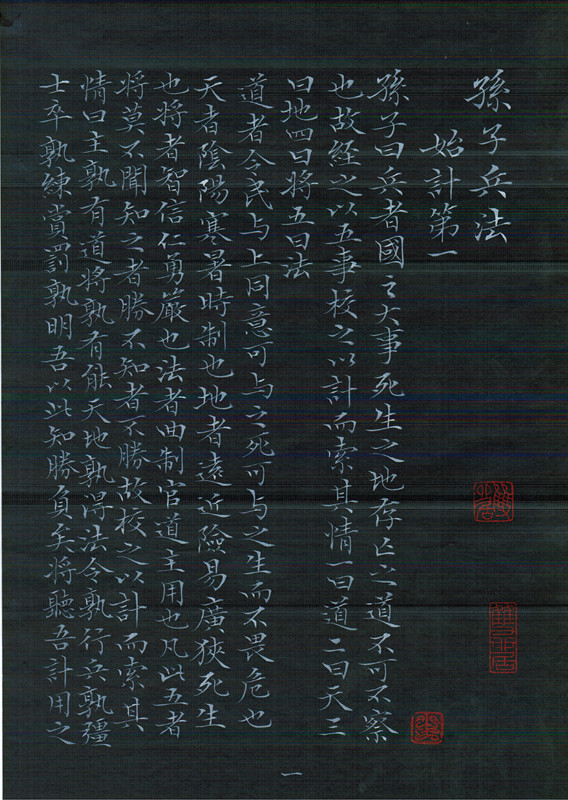 孫子兵法
始計第一
孫子曰兵者國之大事死生之地存亡之道不可不察
也故經之以五事校之以計而索其情一曰道二曰天三
曰地四曰将五曰法
道者令民与上同意可与之死可与之生而不畏危也
天者陰陽寒暑時制也地者遠近險易廣狹死生
也将者智信仁勇嚴也法者曲制官道主用也凡此五者
将莫不聞知之者勝不知者不勝故校之以計而索其
情曰主孰有道将孰有能天地孰得法令孰行兵孰彊
士卒孰練賞罰孰明吾以此知勝負矣将聽吾計用之
一